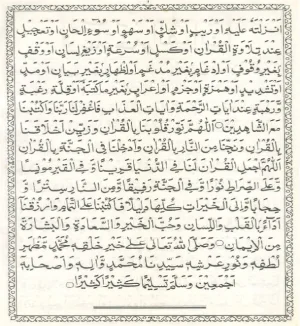 انزلته عليه او ريب او شك او سهو او سوء الحان او تعجيل
عند تلاوة القران او كسل او سرعة او زيغ لسان او وقف
بغير وقوف او ادغام بغير مدغم او اظهار بغير بيان او مد
او تشديد او همزة او جزم او اعراب بغير ما كتبه او قلة رغبة
ورهبة عند ايات الرحمة وايات العذاب فاغفر لنا ربنا واكتبنا
مع الشاهدين اللهم نور قلوبنا بالقران وزين اخلاقنا
بالقران ونجنا من النار بالقران وادخلنا في الجنة بالقران
اللهم اجعل القران لنا في الدنيا قرينا وفي القبر مونسا
وعلى الصراط نورا وفي الجنة رفيقا ومن النار سترا و
حجابا والى الخيرات كلها دليلا فاكتبنا على التمام وارزقنا
اداء بالقلب واللسان وحب الخير والسعادة والبشارة
من الايمان وصلى الله تعالى على خير خلقه محمد مظهر
لطفه ونور عرشه سيدنا محمد واله واصحابه
اجمعين وسلم تسليما كثيرا كثيرا